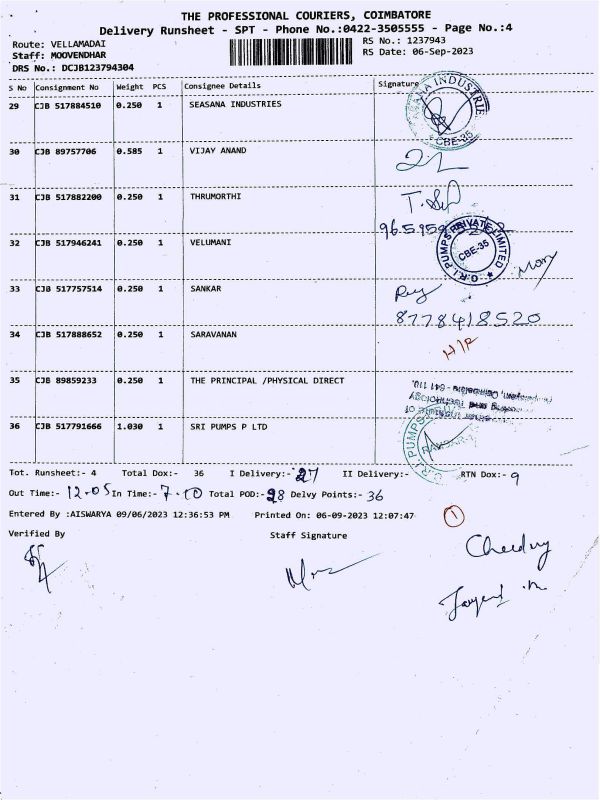 THE PROFESSIONAL COURIERS, COIMBATORE
Delivery Runsheet - SPT - Phone No.:0422-3505555 - Page No.:4
Route: VELLAMADAI
RS No.: 1237943
Staff: MOOVENDHAR
RS Date: 06-Sep-2023
DRS No.: DCJB123794304
S No Consignment No Weight PCS Consignee Details Signature
29 CJB 517884510 0.250 1 SEASANA INDUSTRIES
CBE-35
30 CJB 89757706 0.585 1 VIJAY ANAND
31 CJB 517882200 0.250 1 THRUMORTHI
32 CJB 517946241 0.250 1 VELUMANI
PUMPS PRIVATE LIMITED
CBE-35
33 CJB 517757514 0.250 1 SANKAR
8778418520
34 CJB 517888652 0.250 1 SARAVANAN
35 CJB 89859233 0.250 1 THE PRINCIPAL /PHYSICAL DIRECT
36 CJB 517791666 1.030 1 SRI PUMPS P LTD
Tot. Runsheet:- 4 Total Dox:- 36 I Delivery:- 27 II Delivery:- RTN Dox:- 9
Out Time:- 12.05 In Time:- 7.10 Total POD:- 28 Delvy Points:- 36
Entered By :AISWARYA 09/06/2023 12:36:53 PM Printed On: 06-09-2023 12:07:47
1
Verified By Staff Signature